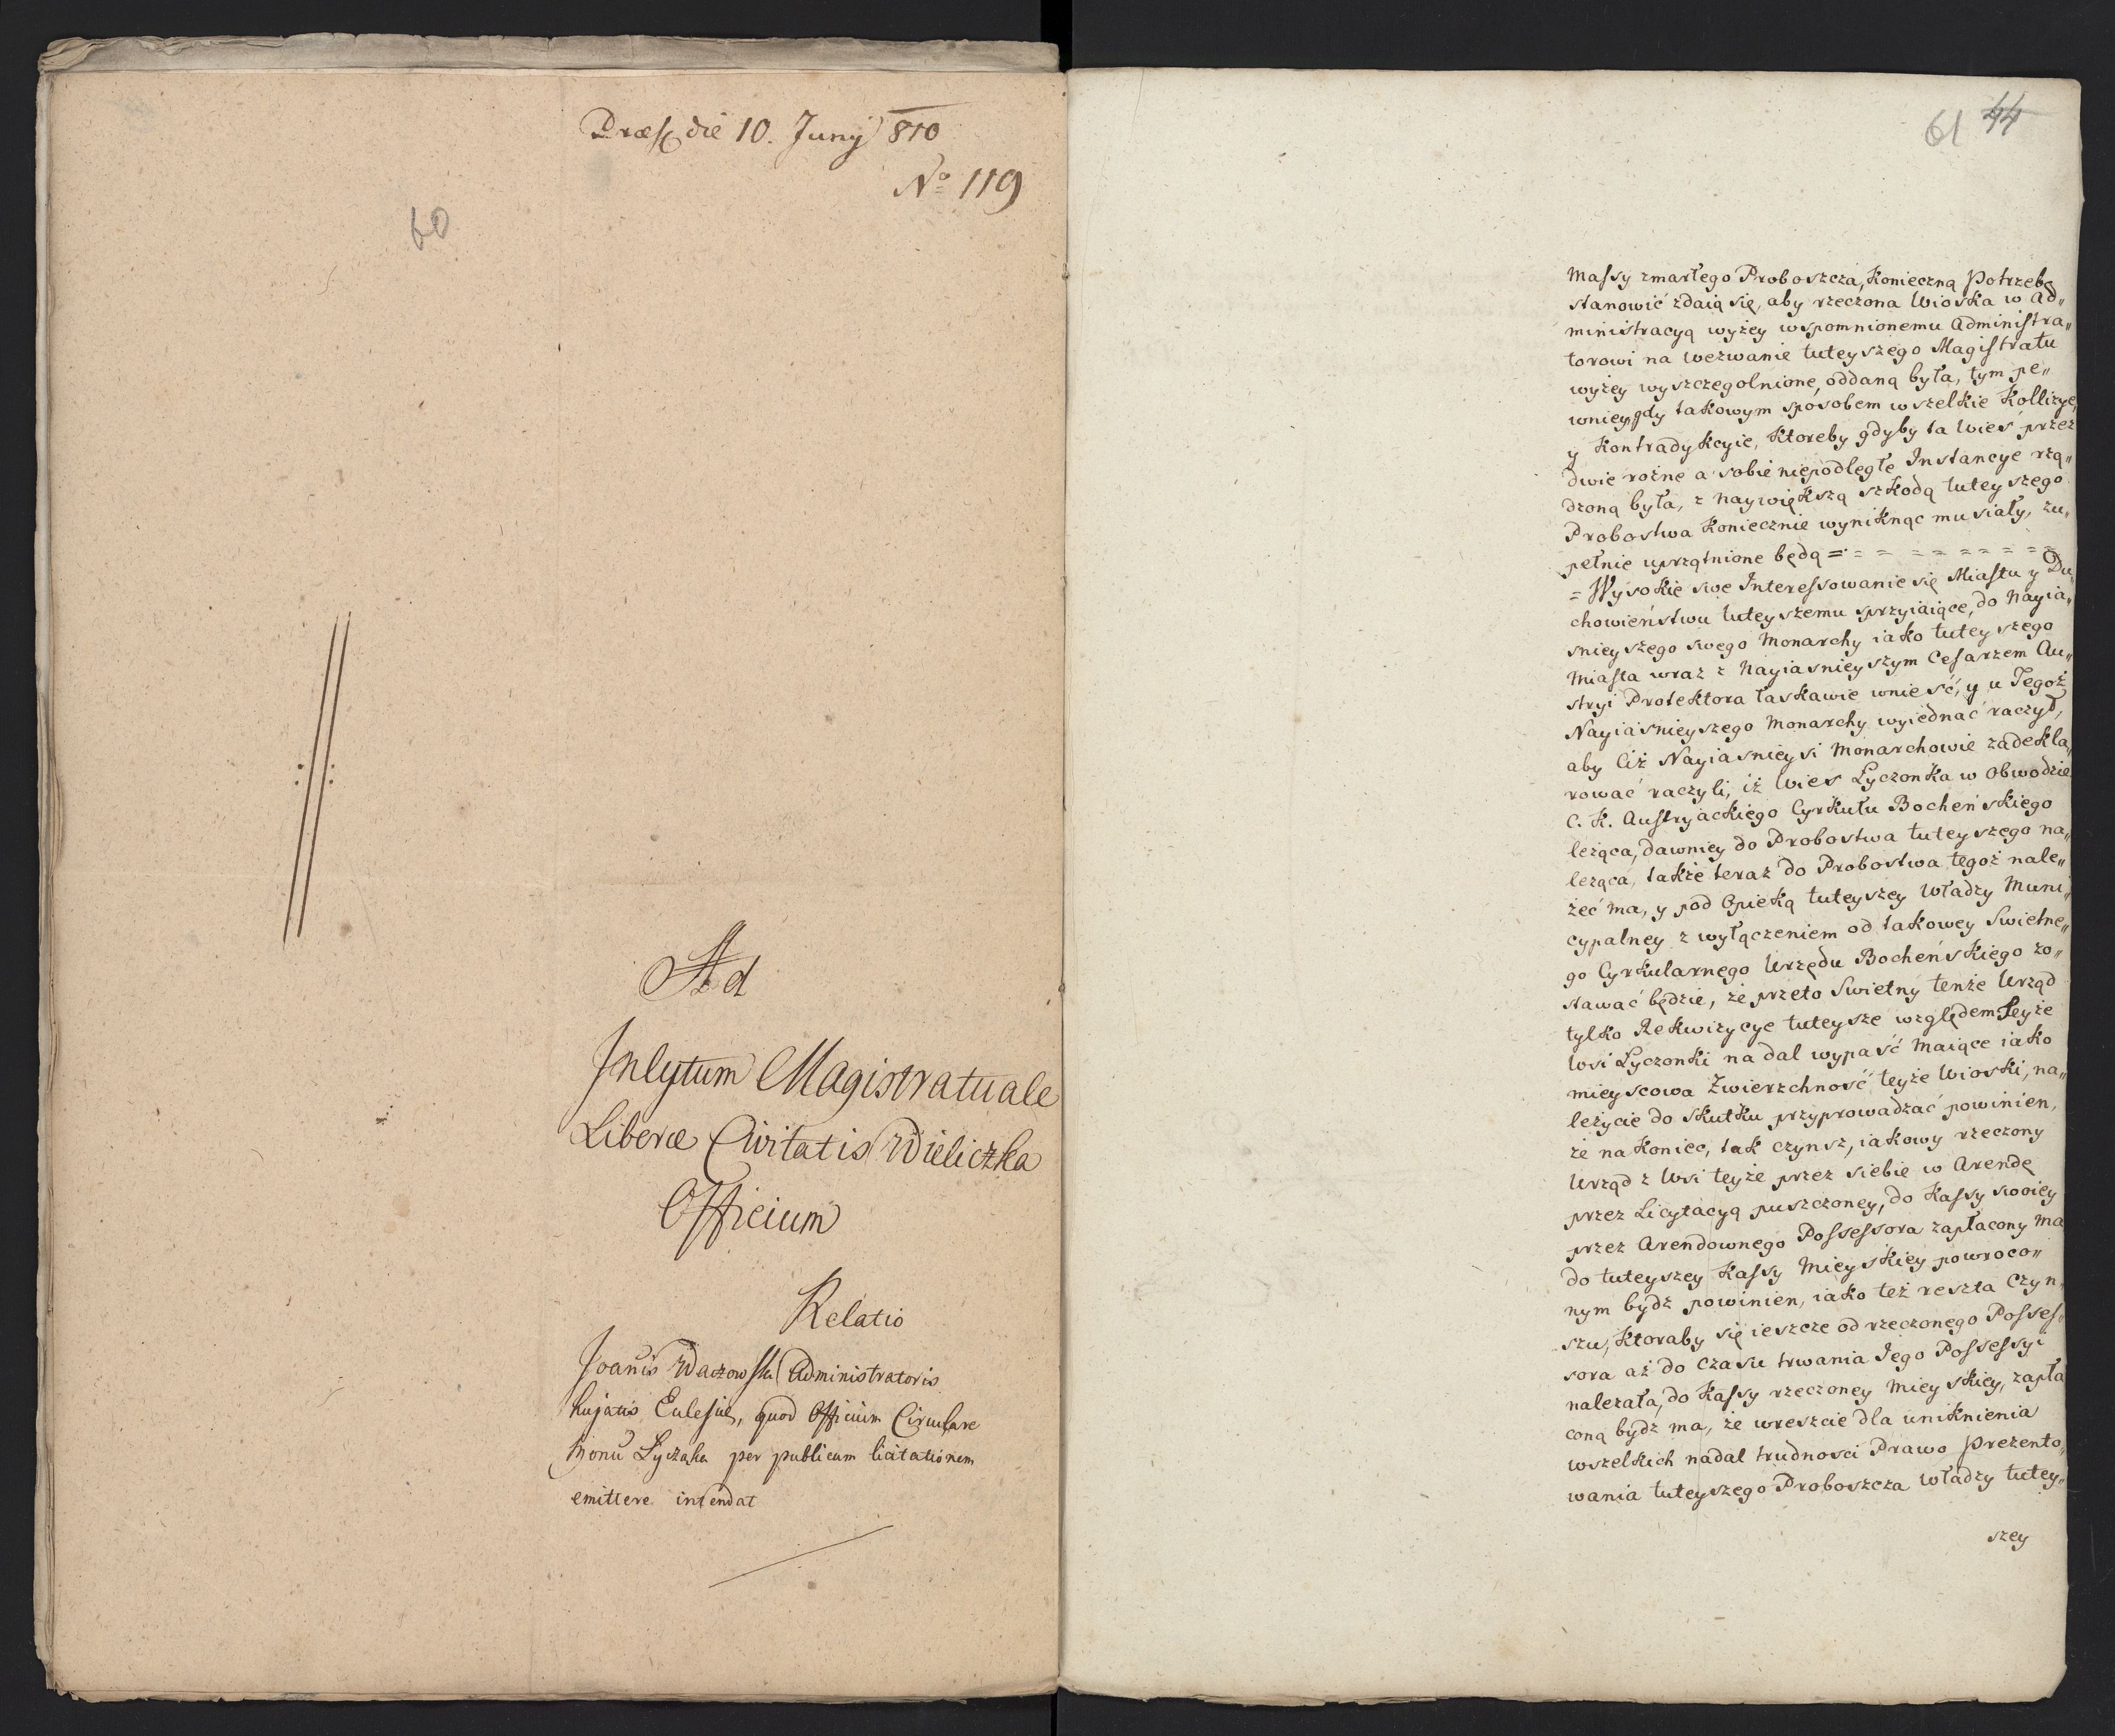 Præs. die 10. Juny 810
No 119
60
Ad
Inlytum Magistratuale
Liberæ Civitatis Wieliczka
Officium
Relatio
Joañis Waczowski Administratoris
hujatis Eulesiæ, quod Officium Circulare
per publicam licitationem
emittere intendat
61 44
Massy zmarłego Proboszcza, Konieczną Potrzebę
stanowić zdaią się, aby rzeczona Wioska w Ad„
ministracyą wyżey wspomnionemu Administra„
torowi na wezwanie tuteyszego Magistratu
wyżey wyszczegolnione, oddaną była, tym pe„
wniey, gdy takowym sposobem wszelkie Kollizye,
y Kontradykcyie, ktoreby gdyby ta Wieś przez
dwie rożne a sobie niepodległe Instancye rzą„
dzoną była, z naywiększą szkodą tuteyszego
Probostwa koniecznie wyniknąc musiały, zu„
pełnie uprzątnione będą = = = = = = = = = =
= Wysokie swe Interessowanie się Miastu y Du„
chowieństwu tuteyszemu sprzyiaiące, do Nayia„
snieyszego swego Monarchy iako tuteyszego
Miasta wraz z Nayiasnieyszym Cesarzem Au„
stryi Protektora łaskawie wnieść, y u Tegoż
Nayiasnieyszego Monarchy wyiednać raczył,
aby Ciż Nayiasnieysi Monarchowie zadekla„
rować raczyli, iż Wies Lyczonka w Obwodzie
C. K. Austryackiego Cyrkułu Bocheńskiego
leżąca, dawniey do Probostwa tuteyszego na„
leżąca, także teraz do Probostwa tegoż nale„
żeć ma, y pod Opieką tuteyszey Władzy Muni„
cypalney z wyłączeniem od takowey Swietne„
go Cyrkularnego Urzędu Bocheńskiego zo„
stawać będzie, że przeto Swietny tenże Urząd
tylko Rekwizycye tuteysze względem Teyże
Wsi Lyczonki nadal wypaść maiące iako
mieyscowa Zwierzchność teyże Wioski, na„
leżycie do skutku przyprowadzać powinien,
że nakoniec, tak czynsz, iakowy rzeczony
Urząd z Wsi teyże przez siebie w Arendę
przez Licytacyą puszczoney, do Kassy swoiey
przez Arendownego Possessora zapłacony ma
do tuteyszey Kassy Mieyskiey powroco„
nym bydź powinien, iako też reszta Czyn„
szu, ktoraby się ieszcze od rzeczonego Posses„
sora aż do czasu trwania Jego Possessyi
należała, do Kassy rzeczoney Mieyskiey, zapła
coną bydź ma, że wreszcie dla uniknienia
wszelkich nadal trudnosci Prawo Prezento„
wania tuteyszego Proboszcza Władzy tutey„
szey